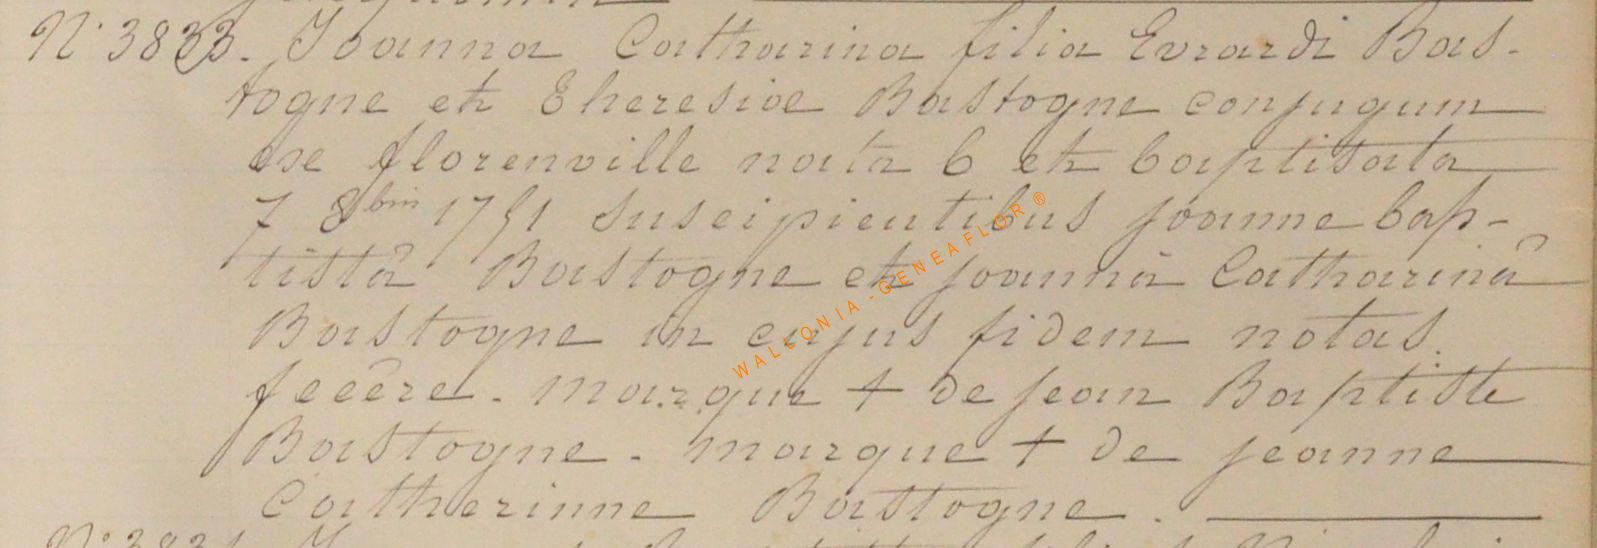 N° 3833. Joanna Catharina filia Evrardi Bas-
togne et Theresiae Bastogne conjugum
ex florenville nata 6 et baptisata
7 8bris 1751 suscipientibus joanne bap-
tistâ Bastogne et joannâ Catharinâ
Bastogne in cujus fidem notas
fecêre. marque + de jean Baptiste
Bastogne. marque + de jeanne
Catherinne Bastogne.
WALLONIA - GENEAFLOR ®